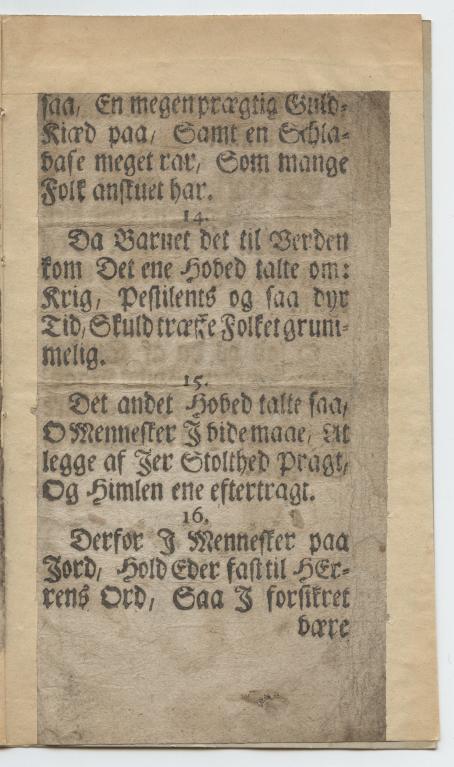 saa, En megen prægtig Guld-
Kiæd paa, Samt en Schla-
base meget rar, Som mange
Folk anskuet har.
14.
Da Barnet det til Verden
kom Det ene Hoved talte om:
Krig, Pestilents og saa dyr
Tid, Skuld træffe Folket grum-
melig.
15.
Det andet Hoved talte saa,
O Mennesker J vide maae, At
legge af Jer Stolthed Pragt,
Og Himlen ene eftertragt.
16.
Derfor J Mennesker paa
Jord, Hold Eder fast til HEr-
rens Ord, Saa J forsikret
være